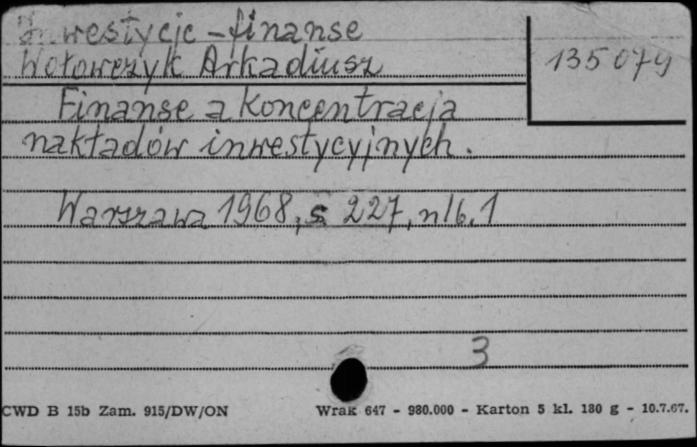 Inwestycje - finanse
Wołowczyk Arkadiusz
135079
Finanse a koncentracja
nakładów inwestycyjnych.
Warszawa 1968, s. 227, nlb. 1
3
CWD B 15b Zam. 915/DW/ON Wrak 647 - 980.000 - Karton 5 kl. 180 g - 10.7.67.